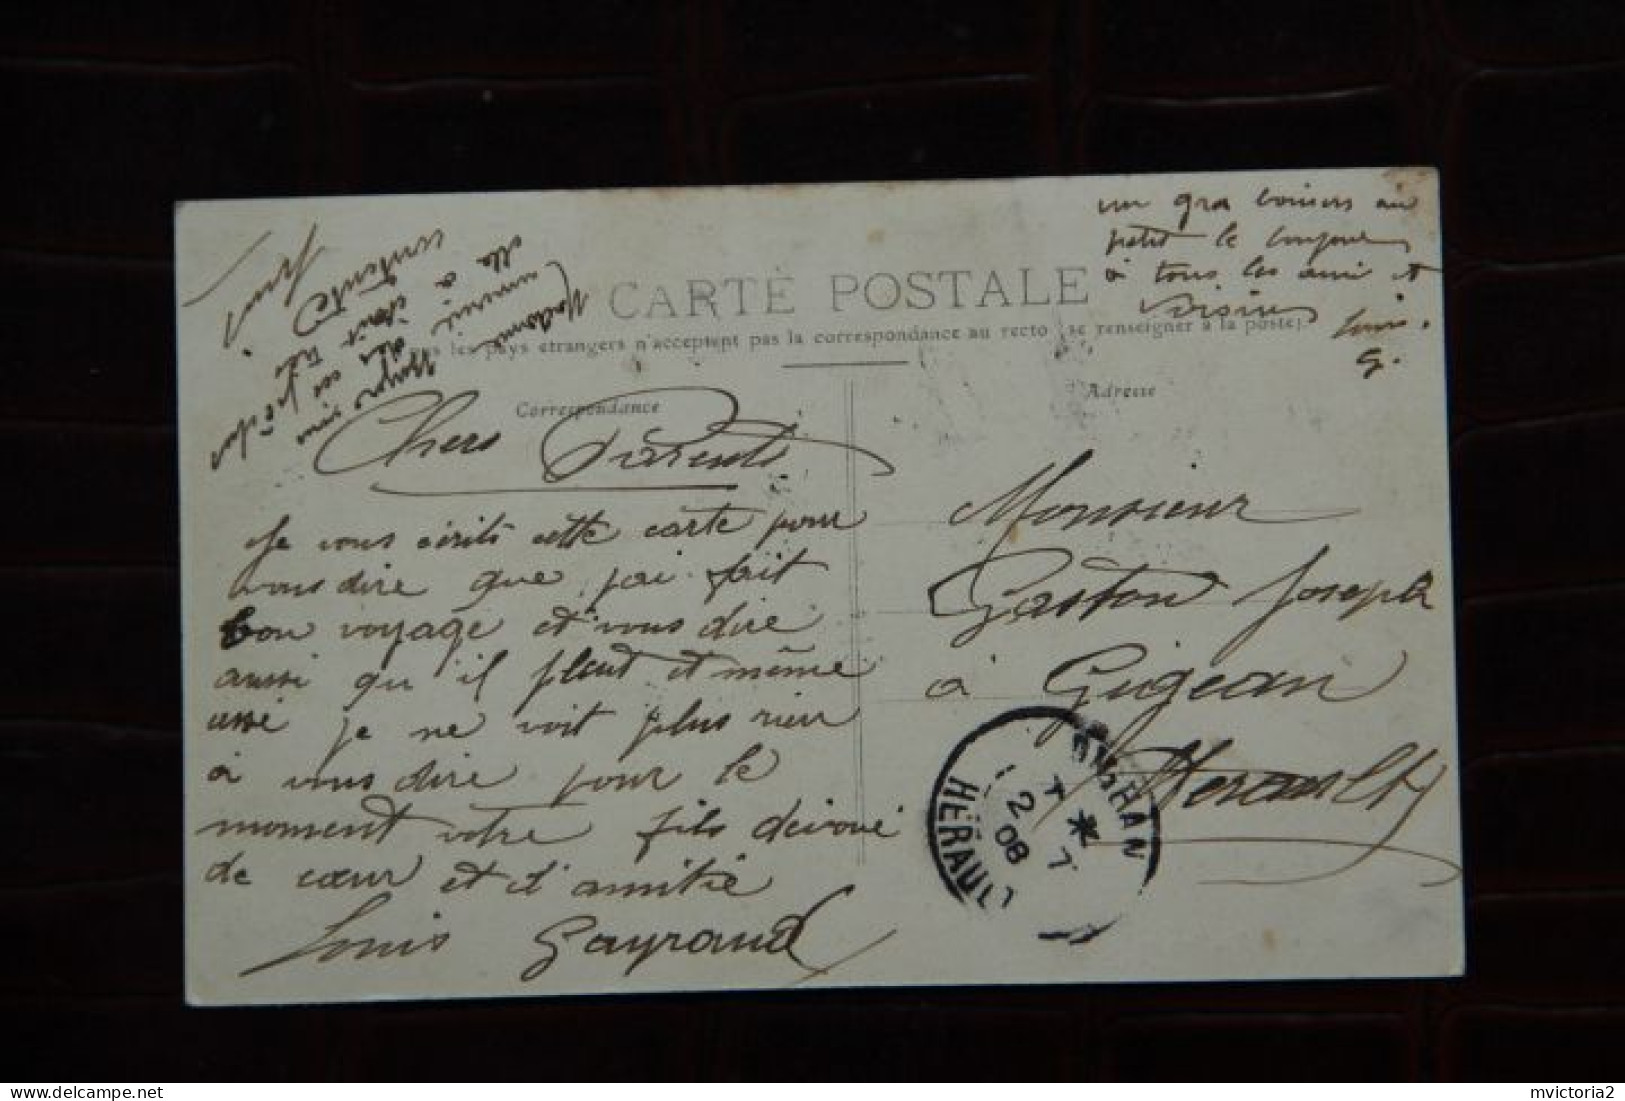 un gra
petit le
à tous les ami et
voisins Louis.
G.
CARTE POSTALE
les pays etrangers n'acceptent pas la correspondance au recto (se renseigner à la poste).
Correspondance
Adresse
Madame
elle a
était
contente
Chers Parents
Je vous écrits cette carte pour
vous dire que jai fait
bon voyage et vous dire
aussi qu'il pleut et même
assé je ne voit plus rien
à vous dire pour le
moment votre fils dévoué
de cœur et d'amitié
Louis Gayraud
Monsieur
Gaston Joseph
à Gigean
Herault
GIGEAN
HÉRAULT
7 *
2 7
08
mvictoria2